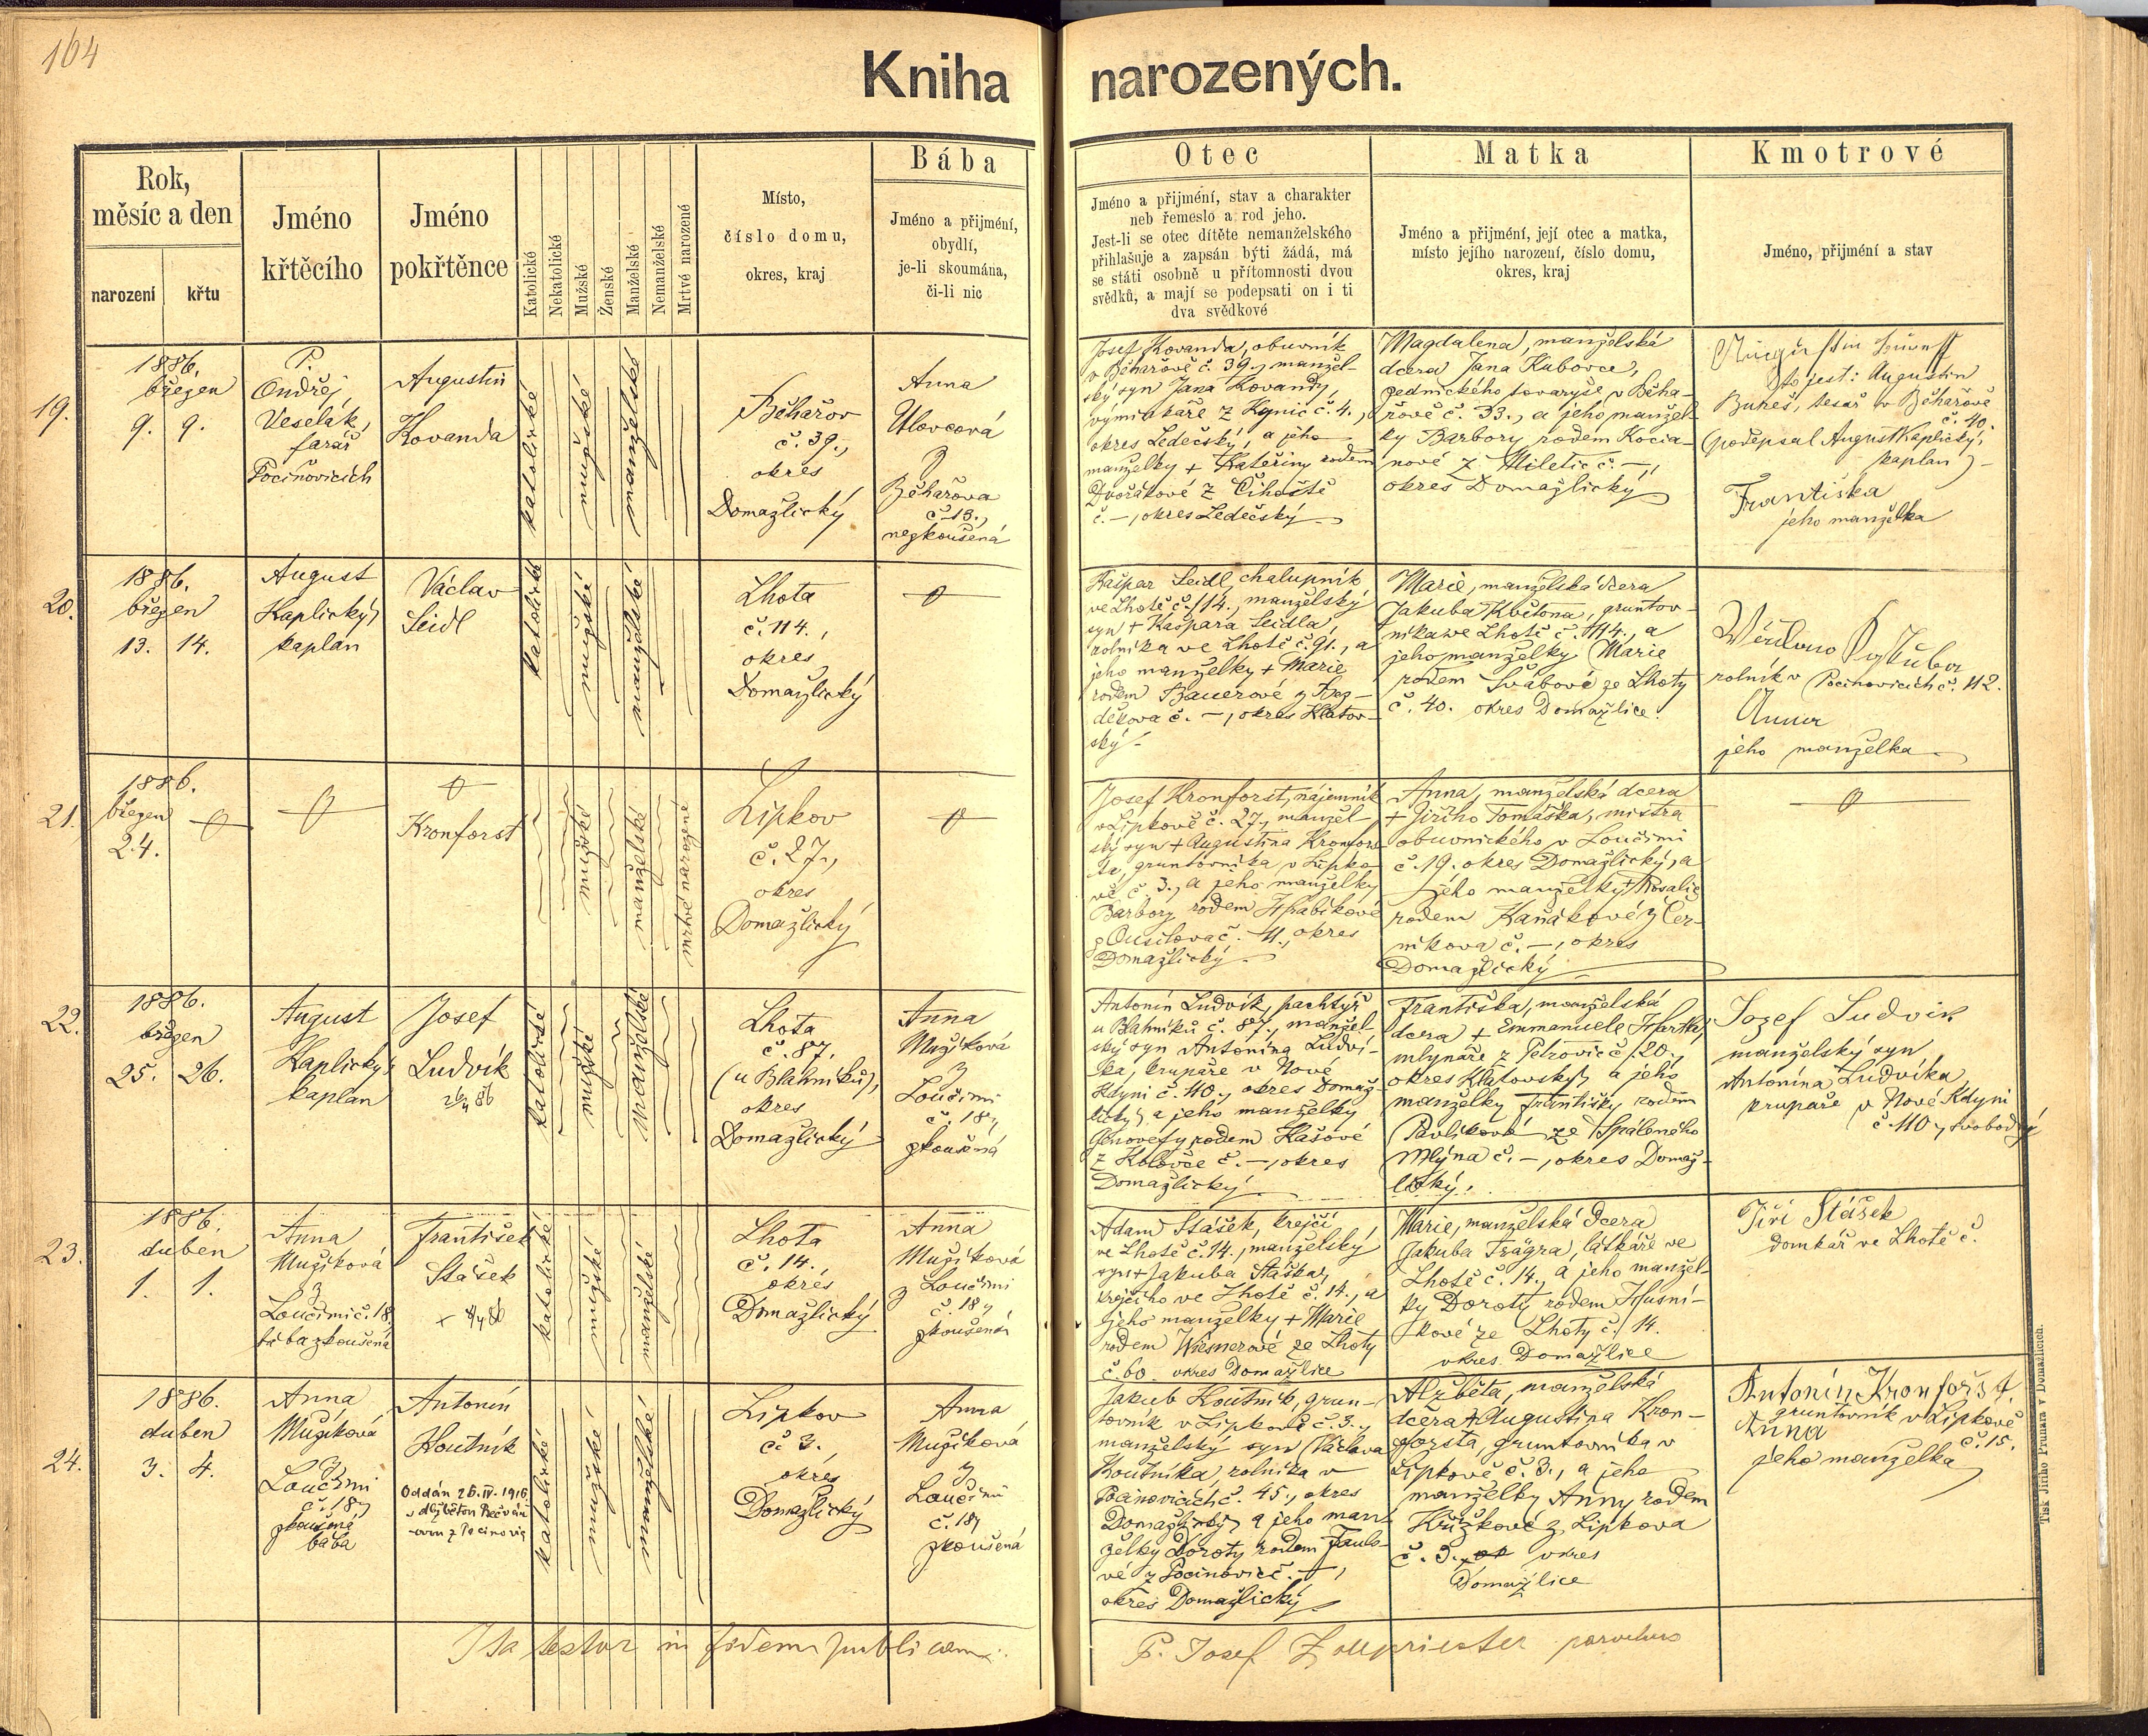 164
Kniha narozených.
Rok, měsíc a den
narození
křtu
Jméno křtěcího
Jméno pokřtěnce
Katolické
Nekatolické
Mužské
Ženské
Manželské
Nemanželské
Mrtvě narozené
Místo,
číslo domu,
okres, kraj
Bába
Jméno a přijmení,
obydlí,
je-li skoumána,
či-li nic
Otec
Jméno a přijmení, stav a charakter
neb řemeslo a rod jeho.
Jest-li se otec dítěte nemanželského
přihlašuje a zapsán býti žádá, má
se státi osobně u přítomnosti dvou
svědků, a mají se podepsati on i ti
dva svědkové
Matka
Jméno a přijmení, její otec a matka,
místo jejího narození, číslo domu,
okres, kraj
Kmotrové
Jméno, přijmení a stav
19.
1886.
březen
9. 9.
P.
Ondřej
Veselák,
farář
Pocinovicích
Augustin
Kovanda
katolické
mužské
manželské
Běhařov
č. 39.,
okres
Domažlický
Anna
Ulovcová
z
Běhařova
č. 13.,
nezkoušená
Josef Kovanda, obuvník
v Běhařově č. 39., manžel-
ský syn Jana Kovandy,
výminkáře z Kynic č. 4.,
okres Ledečský, a jeho
manželky + Kateřiny rodem
Dvořákové z Číhoště
č. –, okres Ledečský
Magdalena, manželská
dcera Jana Kubovce,
zednického tovaryše v Běha-
řově č. 33., a jeho manžel-
ky Barbory rodem Kocia-
nové z Miletic č. –,
okres Domažlický
Augustin
to jest: Augustin
Bureš, tesař v Běhařově
č. 40.
(podepsal August Kaplický,
kaplan)
Františka
jeho manželka
20.
1886.
březen
13. 14.
August
Kaplický,
kaplan
Václav
Seidl
katolické
mužské
manželské
Lhota
č. 114.,
okres
Domažlický
Kašpar Seidl, chalupník
ve Lhotě č. 114., manželský
syn + Kašpara Seidla,
rolníka ve Lhotě č. 91., a
jeho manželky + Marie
rodem Bauerové z Bez-
děkova č. –, okres Klatov-
ský
Marie, manželská dcera
Jakuba Květona, gruntov-
níka ve Lhotě č. 114., a
jeho manželky Marie
rodem Švábové ze Lhoty
č. 40. okres Domažlice.
rolník v Pocinovicích č. 112.
Anna
jeho manželka
21.
1886.
březen
24.
Kronforst
mužské
manželské
mrtvě narozené
Lipkov
č. 27.,
okres
Domažlický
Josef Kronforst, nájemník
v Lipkově č. 27., manžel-
ský syn + Augustina Kronfors-
ta, gruntovníka v Lipko-
vě č. 3., a jeho manželky
Barbory rodem Hrabíkové
z Ousilova č. 11., okres
Domažlický
Anna, manželská dcera
+ Jiřího Tomáška, mistra
obuvnického v Loučimi
č. 19. okres Domažlický, a
jeho manželky + Rosalie
rodem Kaňákové z Čer-
níkova č. –, okres
Domažlický
22.
1886.
březen
25. 26.
August
Kaplický,
kaplan
Josef
Ludvík
katolické
mužské
manželské
Lhota
č. 87.
(u Blahníků),
okres
Domažlický
Anna
Mužíková
z
Loučimi
č. 18.,
zkoušená
Antonín Ludvík, pachtýř
u Blahníků č. 87., manžel-
ský syn Antonína Ludví-
ka, krupaře v Nové
Kdyni č. 110., okres Domaž-
lický, a jeho manželky
Genovefy rodem Hašové
z Kolovče č. –, okres
Domažlický
Františka, manželská
dcera + Emmanuele Hartky,
mlynáře z Petrovic č. 20.,
okres Klatovský, a jeho
manželky Františky rodem
Pavlíkové ze Spáleného
Mlýna č. –, okres Domaž-
lický.
Jozef Ludvik
manželský syn
Antonína Ludvíka
krupaře v Nové Kdyni
č. 110., svobodný
23.
1886.
duben
1. 1.
Anna
Mužíková
z
Loučimi č. 18,
bába zkoušená
František
Stášek
katolické
mužské
manželské
Lhota
č. 14.,
okres
Domažlický
Anna
Mužíková
z Loučimi
č. 18.,
zkoušená
Adam Stášek, krejčí
ve Lhotě č. 14., manželský
syn + Jakuba Stáška,
krejčího ve Lhotě č. 14., a
jeho manželky + Marie
rodem Wiesnerové ze Lhoty
č. 60. okres Domažlice
Marie, manželská dcera
Jakuba Trägra, látkáře ve
Lhotě č. 14., a jeho manžel-
ky Doroty rodem Husní-
kové ze Lhoty č. 14.
okres Domažlice
Jiří Stášek
domkář ve Lhotě č.
24.
1886.
duben
3. 4.
Anna
Mužíková
z
Loučimi
č. 18.,
zkoušená
bába
Antonín
Koutník
Oddán 26.IV.1916
katolické
mužské
manželské
Lipkov
č. 3.,
okres
Domažlický
Anna
Mužíková
z
Loučimi
č. 18.,
zkoušená
Jakub Koutník, grun-
tovník v Lipkově č. 3.,
manželský syn Václava
Koutníka, rolníka v
Pocinovicích č. 45., okres
Domažlický, a jeho man-
želky Doroty rodem Taule-
vé z Pocinovic č. –,
okres Domažlický
Alžběta, manželská
dcera + Augustina Kron-
forsta, gruntovníka v
Lipkově č. 3., a jeho
manželky Anny rodem
Křížkové z Lipkova
č. 3., okres
Domažlice
Antonín Kronforst
gruntovník v Lipkově
č. 15.
Anna
jeho manželka
Ita testor in fidem publicam
P. Josef Zollpriester parochus
Tisk Jiřího Prunara v Domažlicích.